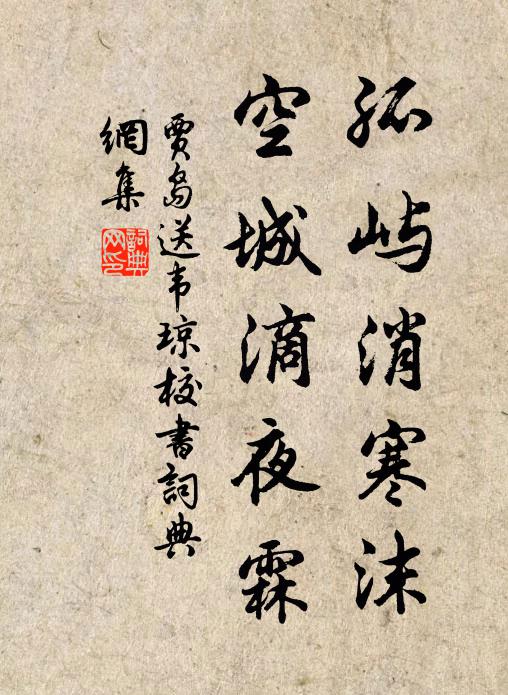 孤屿消寒沫
空城滴夜霖
贾岛送韦琼校書詞典
網集
詞典网印